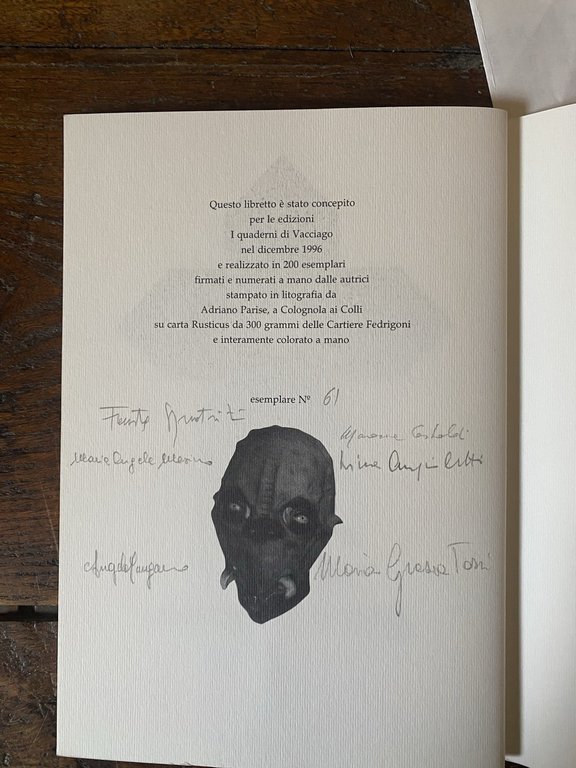 Questo libretto è stato concepito
per le edizioni
I quaderni di Vacciago
nel dicembre 1996
e realizzato in 200 esemplari
firmati e numerati a mano dalle autrici
stampato in litografia da
Adriano Parise, a Colognola ai Colli
su carta Rusticus da 300 grammi delle Cartiere Fedrigoni
e interamente colorato a mano
esemplare Nº 61
Maria Angela
Maria Grazia